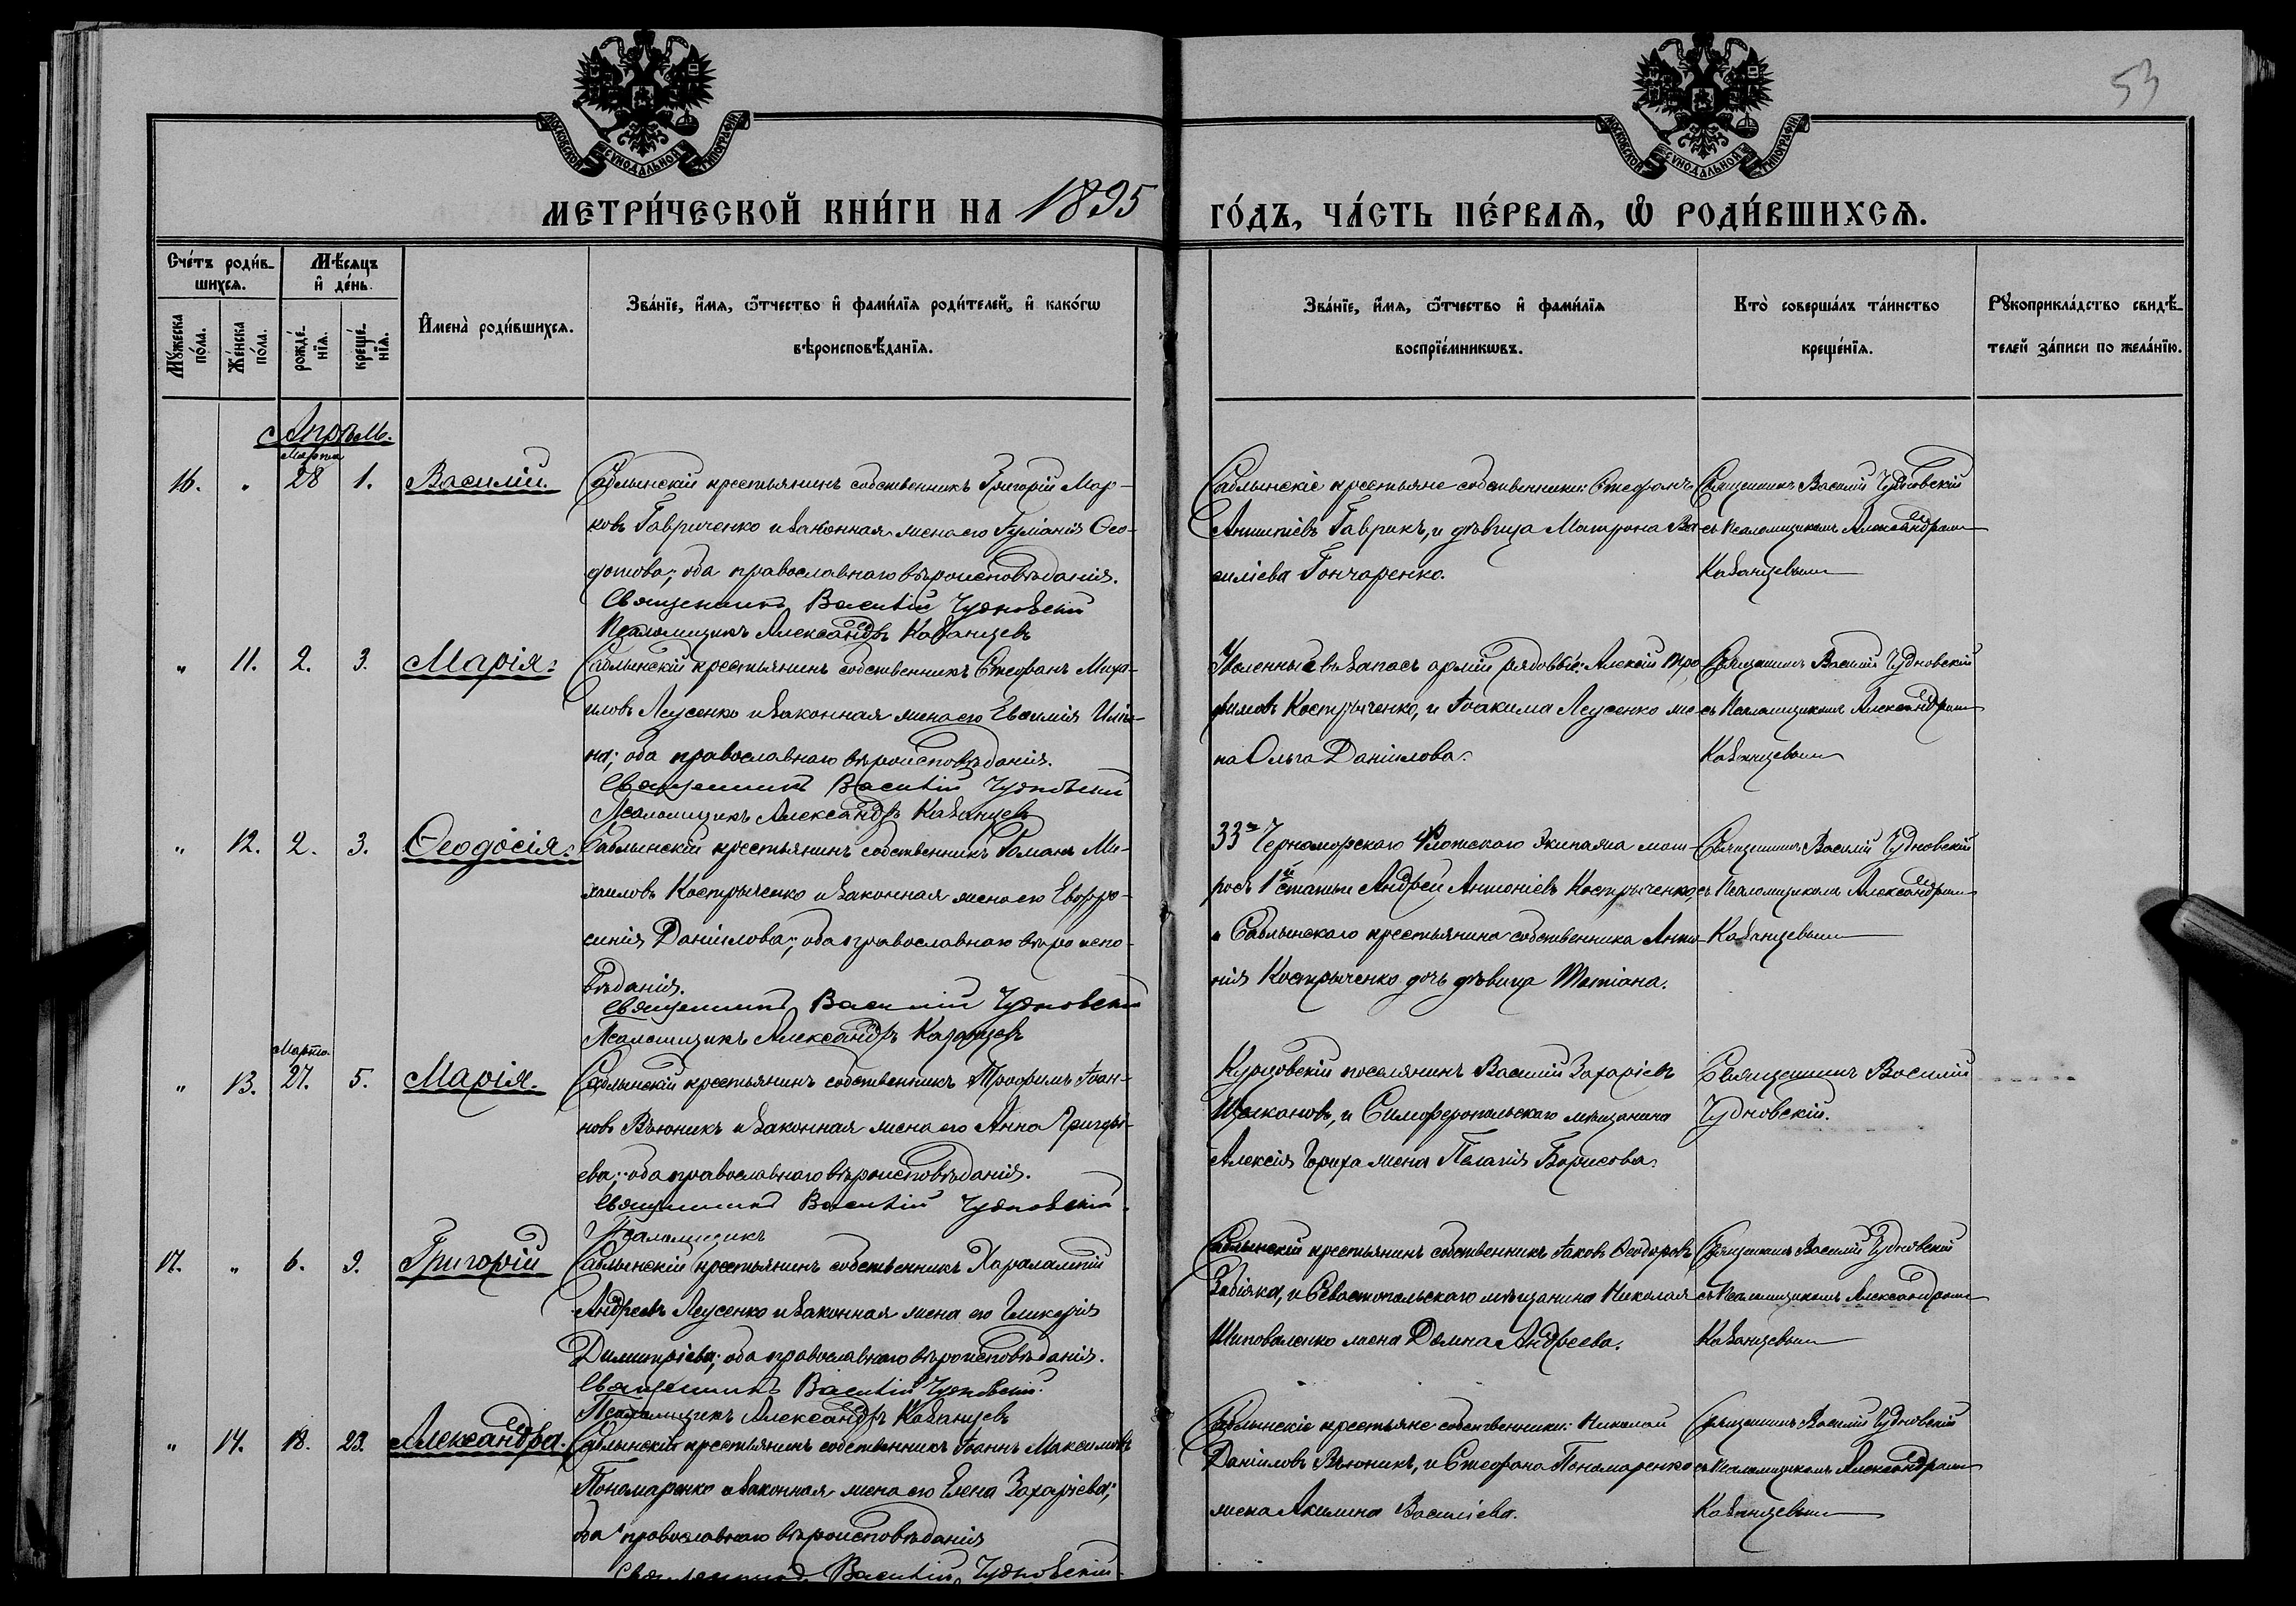 53
МОСКОВСКОЙ СѴНОДАЛЬНОЙ ТИПОГРАФІИ
МОСКОВСКОЙ СѴНОДАЛЬНОЙ ТИПОГРАФІИ
МЕТРИ́ЧЕСКОЙ КНИ́ГИ НА 1895
ГО́ДЪ, ЧА́СТЬ ПЕ́РВАѦ, Ѽ РОДИ́ВШИХСѦ.
Сче́тъ роди́в-
шихсѧ.
Мѣ́сѧцъ
и҆ де́нь.
Мꙋ́жеска по́ла.
Же́нска по́ла.
рожде́нїѧ.
креще́нїѧ.
И҆мена̀ роди́вшихсѧ.
Зва́нїе, и҆́мѧ, ѻ҆́тчество и҆ фами́лїѧ роди́телей, и҆ како́гѡ
вѣроисповѣ́данїѧ.
Зва́нїе, и҆́мѧ, ѻ҆́тчество и҆ фами́лїѧ
воспрїе́мникѡвъ.
Кто̀ соверша́лъ та́инство
креще́нїѧ.
Рꙋкоприкла́дство свидѣ́-
телей за́писи по жела́нїю.
Апрѣль.
Марта
16. " 28 1. Василій.
Саблынскій крестьянинъ собственникъ Григорій Мар-
ковъ Гавриченко и законная жена его Іуліанія Ѳео-
дотова; оба православнаго вѣроисповѣданія.
Священникъ Василій Чудновскій
Псаломщикъ Александръ Казанцевъ
Саблынскіе крестьяне собственники: Стефанъ
Антиповъ Гаврикъ, и дѣвица Матрона Ва-
силіева Гончаренко.
Священникъ Василій Чудновскій
съ Псаломщикомъ Александромъ
Казанцевымъ
" 11. 2. 3. Марія.
Саблынскій крестьянинъ собственникъ Стефанъ Миха-
иловъ Леусенко и законная жена его Евфимія Иліи-
на; оба православнаго вѣроисповѣданія.
Священникъ Василій Чудновскій
Псаломщикъ Александръ Казанцевъ
Уволенные въ запасъ арміи рядовые: Алексій Тро-
фимовъ Костыченко, и Іоакима Леусенко же-
на Ольга Даніилова.
Священникъ Василій Чудновскій
съ Псаломщикомъ Александромъ
Казанцевымъ
" 12. 2. 3. Ѳеодосія.
Саблынскій крестьянинъ собственникъ Романъ Ми-
хаиловъ Костыченко и законная жена его Евфро-
синія Даніилова; оба православнаго вѣроиспо-
вѣданія.
Священникъ Василій Чудновскій
Псаломщикъ Александръ Казанцевъ
33го Черноморскаго Флотскаго Экипажа мат-
росъ 1й статьи Андрей Антоніевъ Костыченко,
и Саблынскаго крестьянина собственника Анто-
нія Костыченко дочь дѣвица Татіана.
Священникъ Василій Чудновскій
съ Псаломщикомъ Александромъ
Казанцевымъ
Марта.
" 13. 27. 5. Марія.
Саблынскій крестьянинъ собственникъ Трофимъ Іоан-
новъ Вьюникъ и законная жена его Анна Григорі-
ева; оба православнаго вѣроисповѣданія.
Священникъ Василій Чудновскій.
Псаломщикъ
Курцовскій поселянинъ Василій Захаріевъ
и Симферопольскаго мѣщанина
Алексія жена Пелагія Борисова.
Священникъ Василій
Чудновскій.
17. " 6. 9. Григорій
Саблынскій крестьянинъ собственникъ Харалампій
Андреевъ Леусенко и законная жена его Гликерія
Димитріева; оба православнаго вѣроисповѣданія.
Священникъ Василій Чудновскій.
Псаломщикъ Александръ Казанцевъ
Саблынскій крестьянинъ собственникъ Іаковъ Ѳеодоровъ
Забіяка, и Севастопольскаго мѣщанина Николая
Шаповаленко жена Домна Андреева.
Священникъ Василій Чудновскій
съ Псаломщикомъ Александромъ
Казанцевымъ
" 14. 18. 23. Александра.
Саблынскій крестьянинъ собственникъ Іоаннъ Максимовъ
Пономаренко и законная жена его Елена Захаріева;
оба православнаго вѣроисповѣданія
Священникъ Василій Чудновскій
Саблынскіе крестьяне собственники: Николай
Даніиловъ Вьюникъ, и Стефана Пономаренко
жена Акилина Василіева.
Священникъ Василій Чудновскій
съ Псаломщикомъ Александромъ
Казанцевымъ